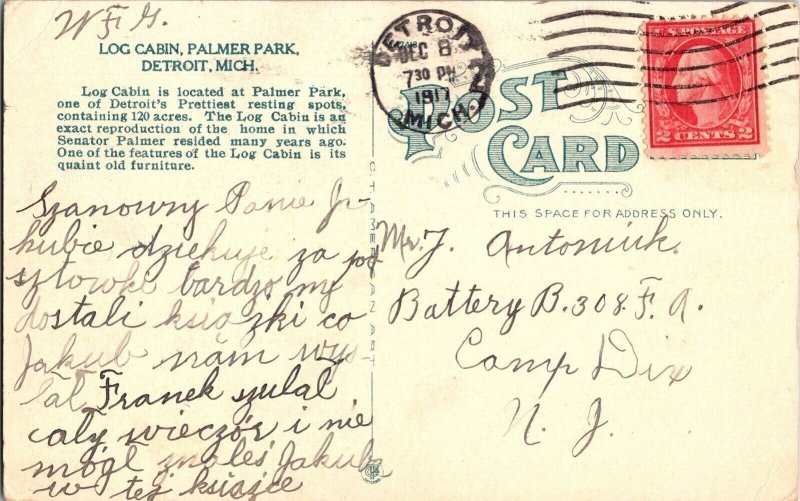 W F G.
LOG CABIN, PALMER PARK,
DETROIT, MICH.
Log Cabin is located at Palmer Park,
one of Detroit's Prettiest resting spots,
containing 120 acres. The Log Cabin is an
exact reproduction of the home in which
Senator Palmer resided many years ago.
One of the features of the Log Cabin is its
quaint old furniture.
Szanowny Panie Ja-
kubie dziekuje za po
sztowke bardzo my
dostali ksiązki co
Jakub nam wys-
łał Franek szulał
cały wieczór i nie
mógł znaleś Jakuba
w tej ksiązce
C T AMERICAN ART
DETROIT
DEC 8
7 30 PM
1917
MICH.
U.S. POSTAGE
2 CENTS 2
POST
CARD
THIS SPACE FOR ADDRESS ONLY.
Mr. J. Antoniuk.
Battery B. 308. F. A.
Camp Dix
N. J.